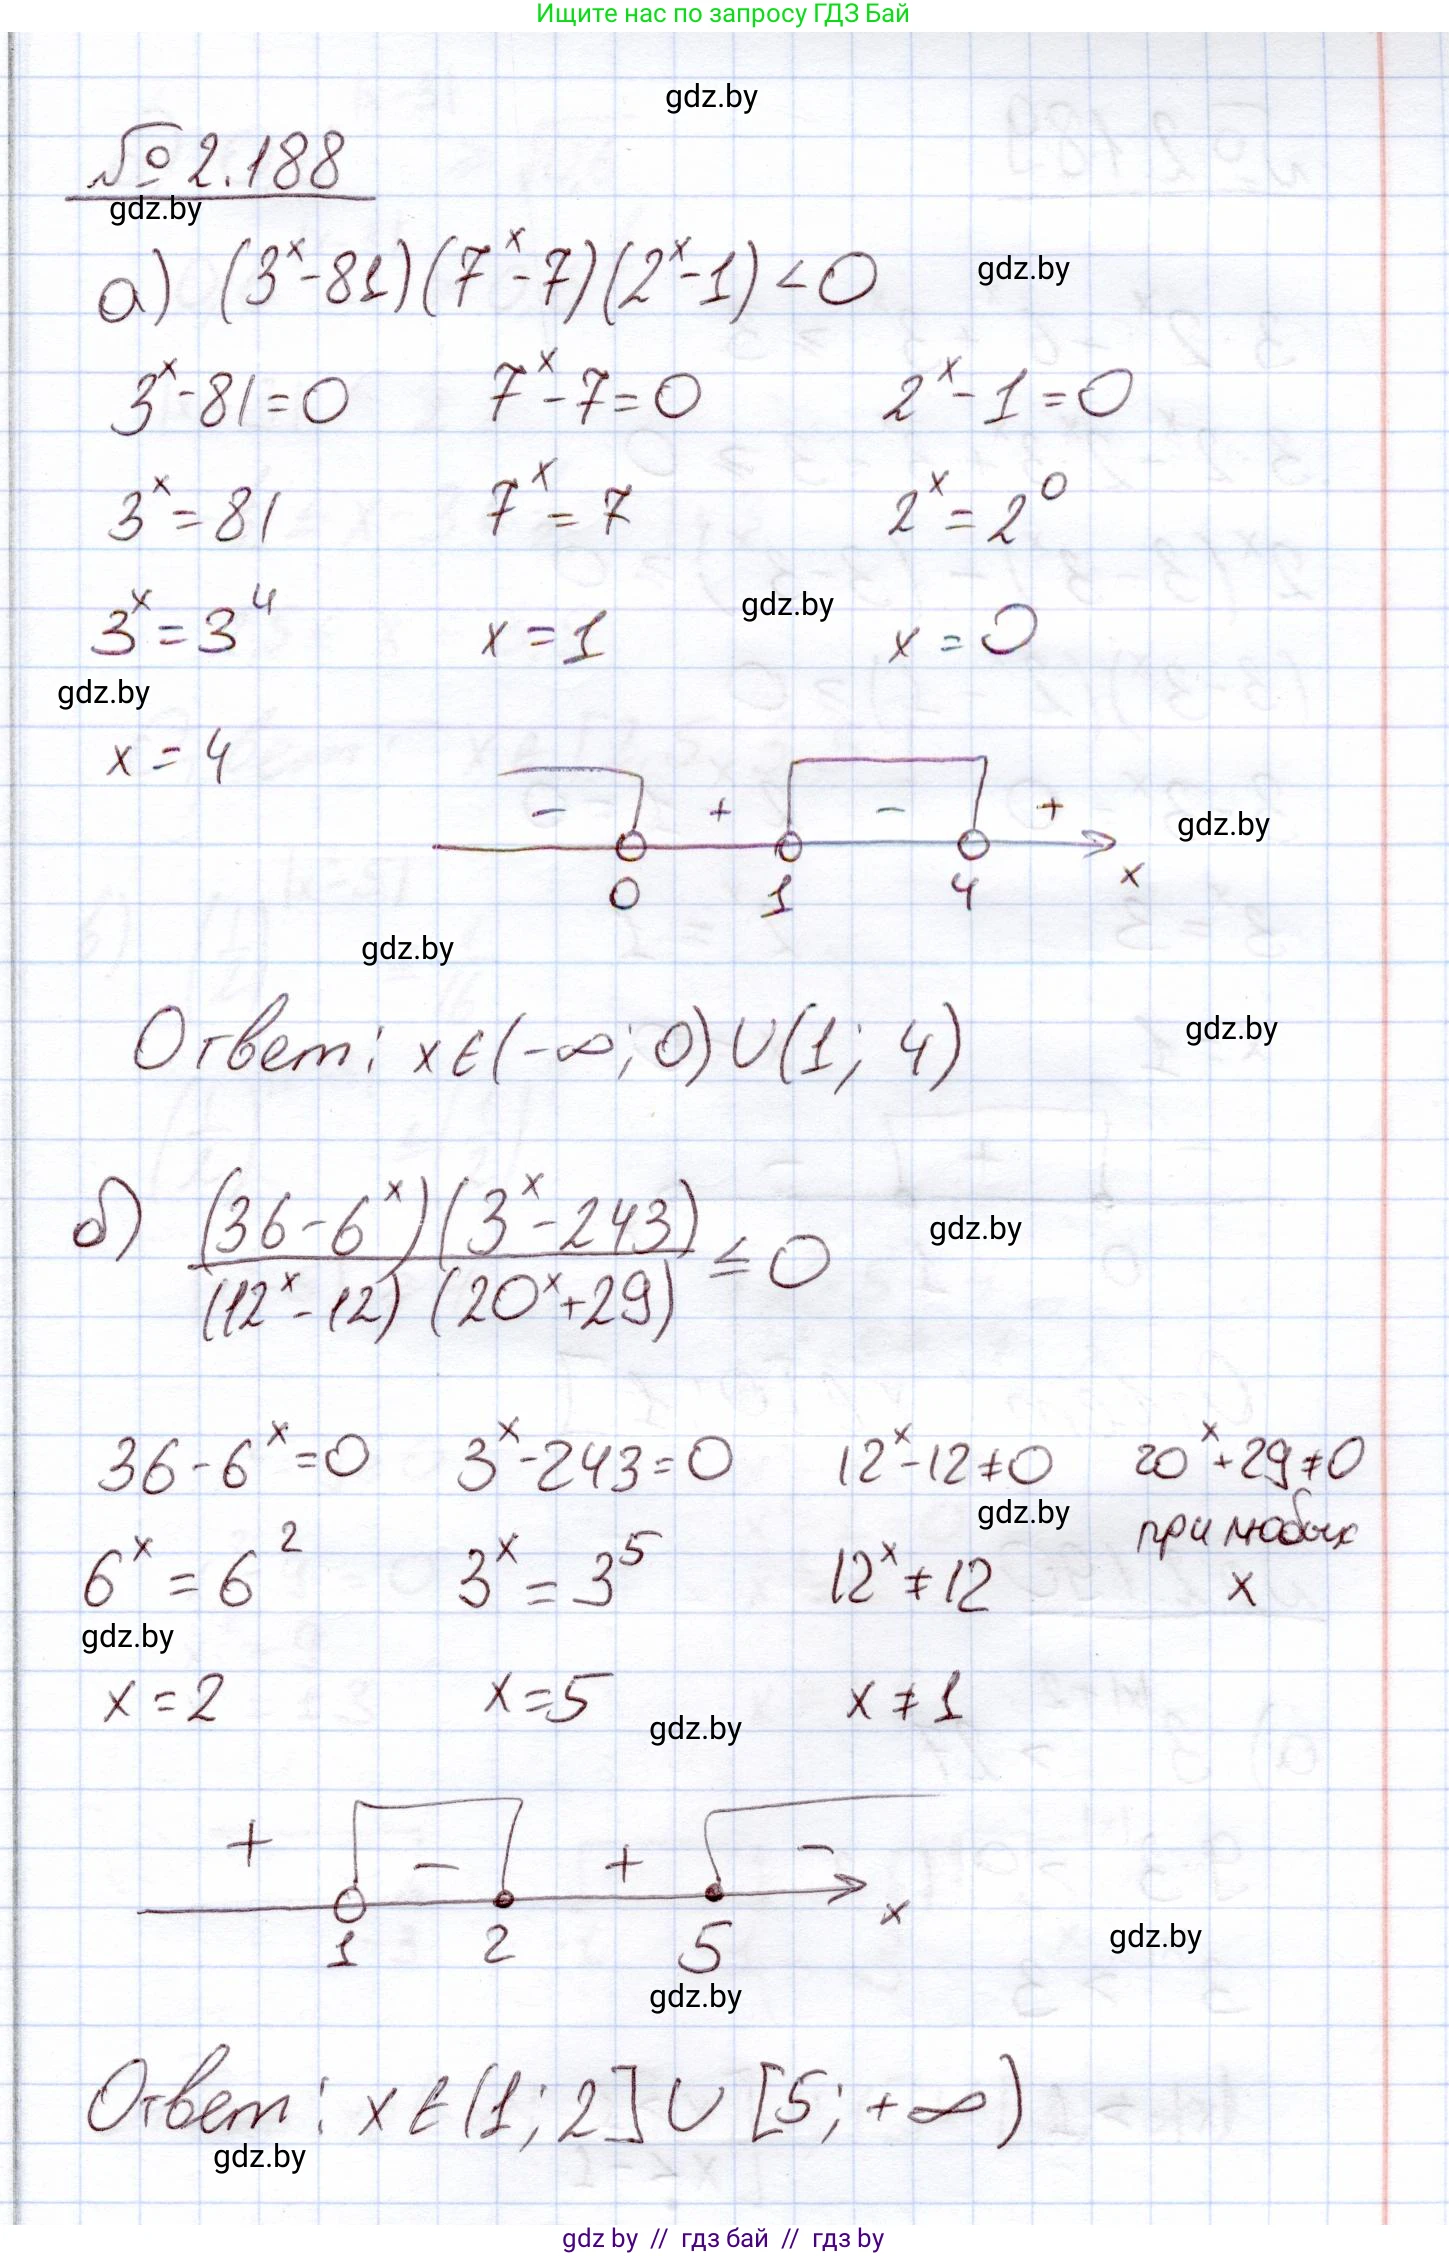 Ищите нас по запросу ГДЗ Бай
gdz.by
№ 2.188
gdz.by
а) (3^x - 81)(7^x - 7)(2^x - 1) < 0
gdz.by
3^x - 81 = 0   7^x - 7 = 0   2^x - 1 = 0
3^x = 81   7^x = 7   2^x = 2^0
gdz.by
3^x = 3^4   x = 1   x = 0
gdz.by
x = 4
- + - +
gdz.by
0 1 4 x
gdz.by
Ответ: x ∈ (-∞; 0) ∪ (1; 4)
gdz.by
б) (36 - 6^x)(3^x - 243) / (12^x - 12)(20^x + 29) ≤ 0
gdz.by
36 - 6^x = 0   3^x - 243 = 0   12^x - 12 ≠ 0   20^x + 29 ≠ 0
gdz.by
при любых
6^x = 6^2   3^x = 3^5   12^x ≠ 12   x
gdz.by
x = 2   x = 5   x ≠ 1
gdz.by
+ - + -
1 2 5 x
gdz.by
gdz.by
Ответ: x ∈ (1; 2] ∪ [5; +∞)
gdz.by
gdz by // гдз бай // гдз by